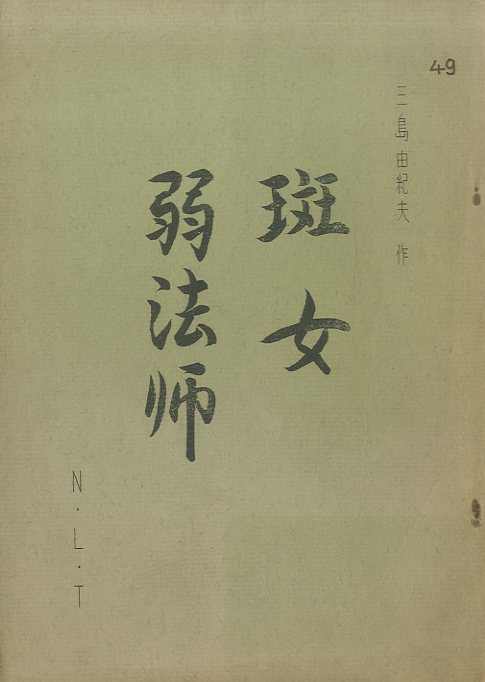 49
三島由紀夫 作
斑女
弱法師
N・L・T